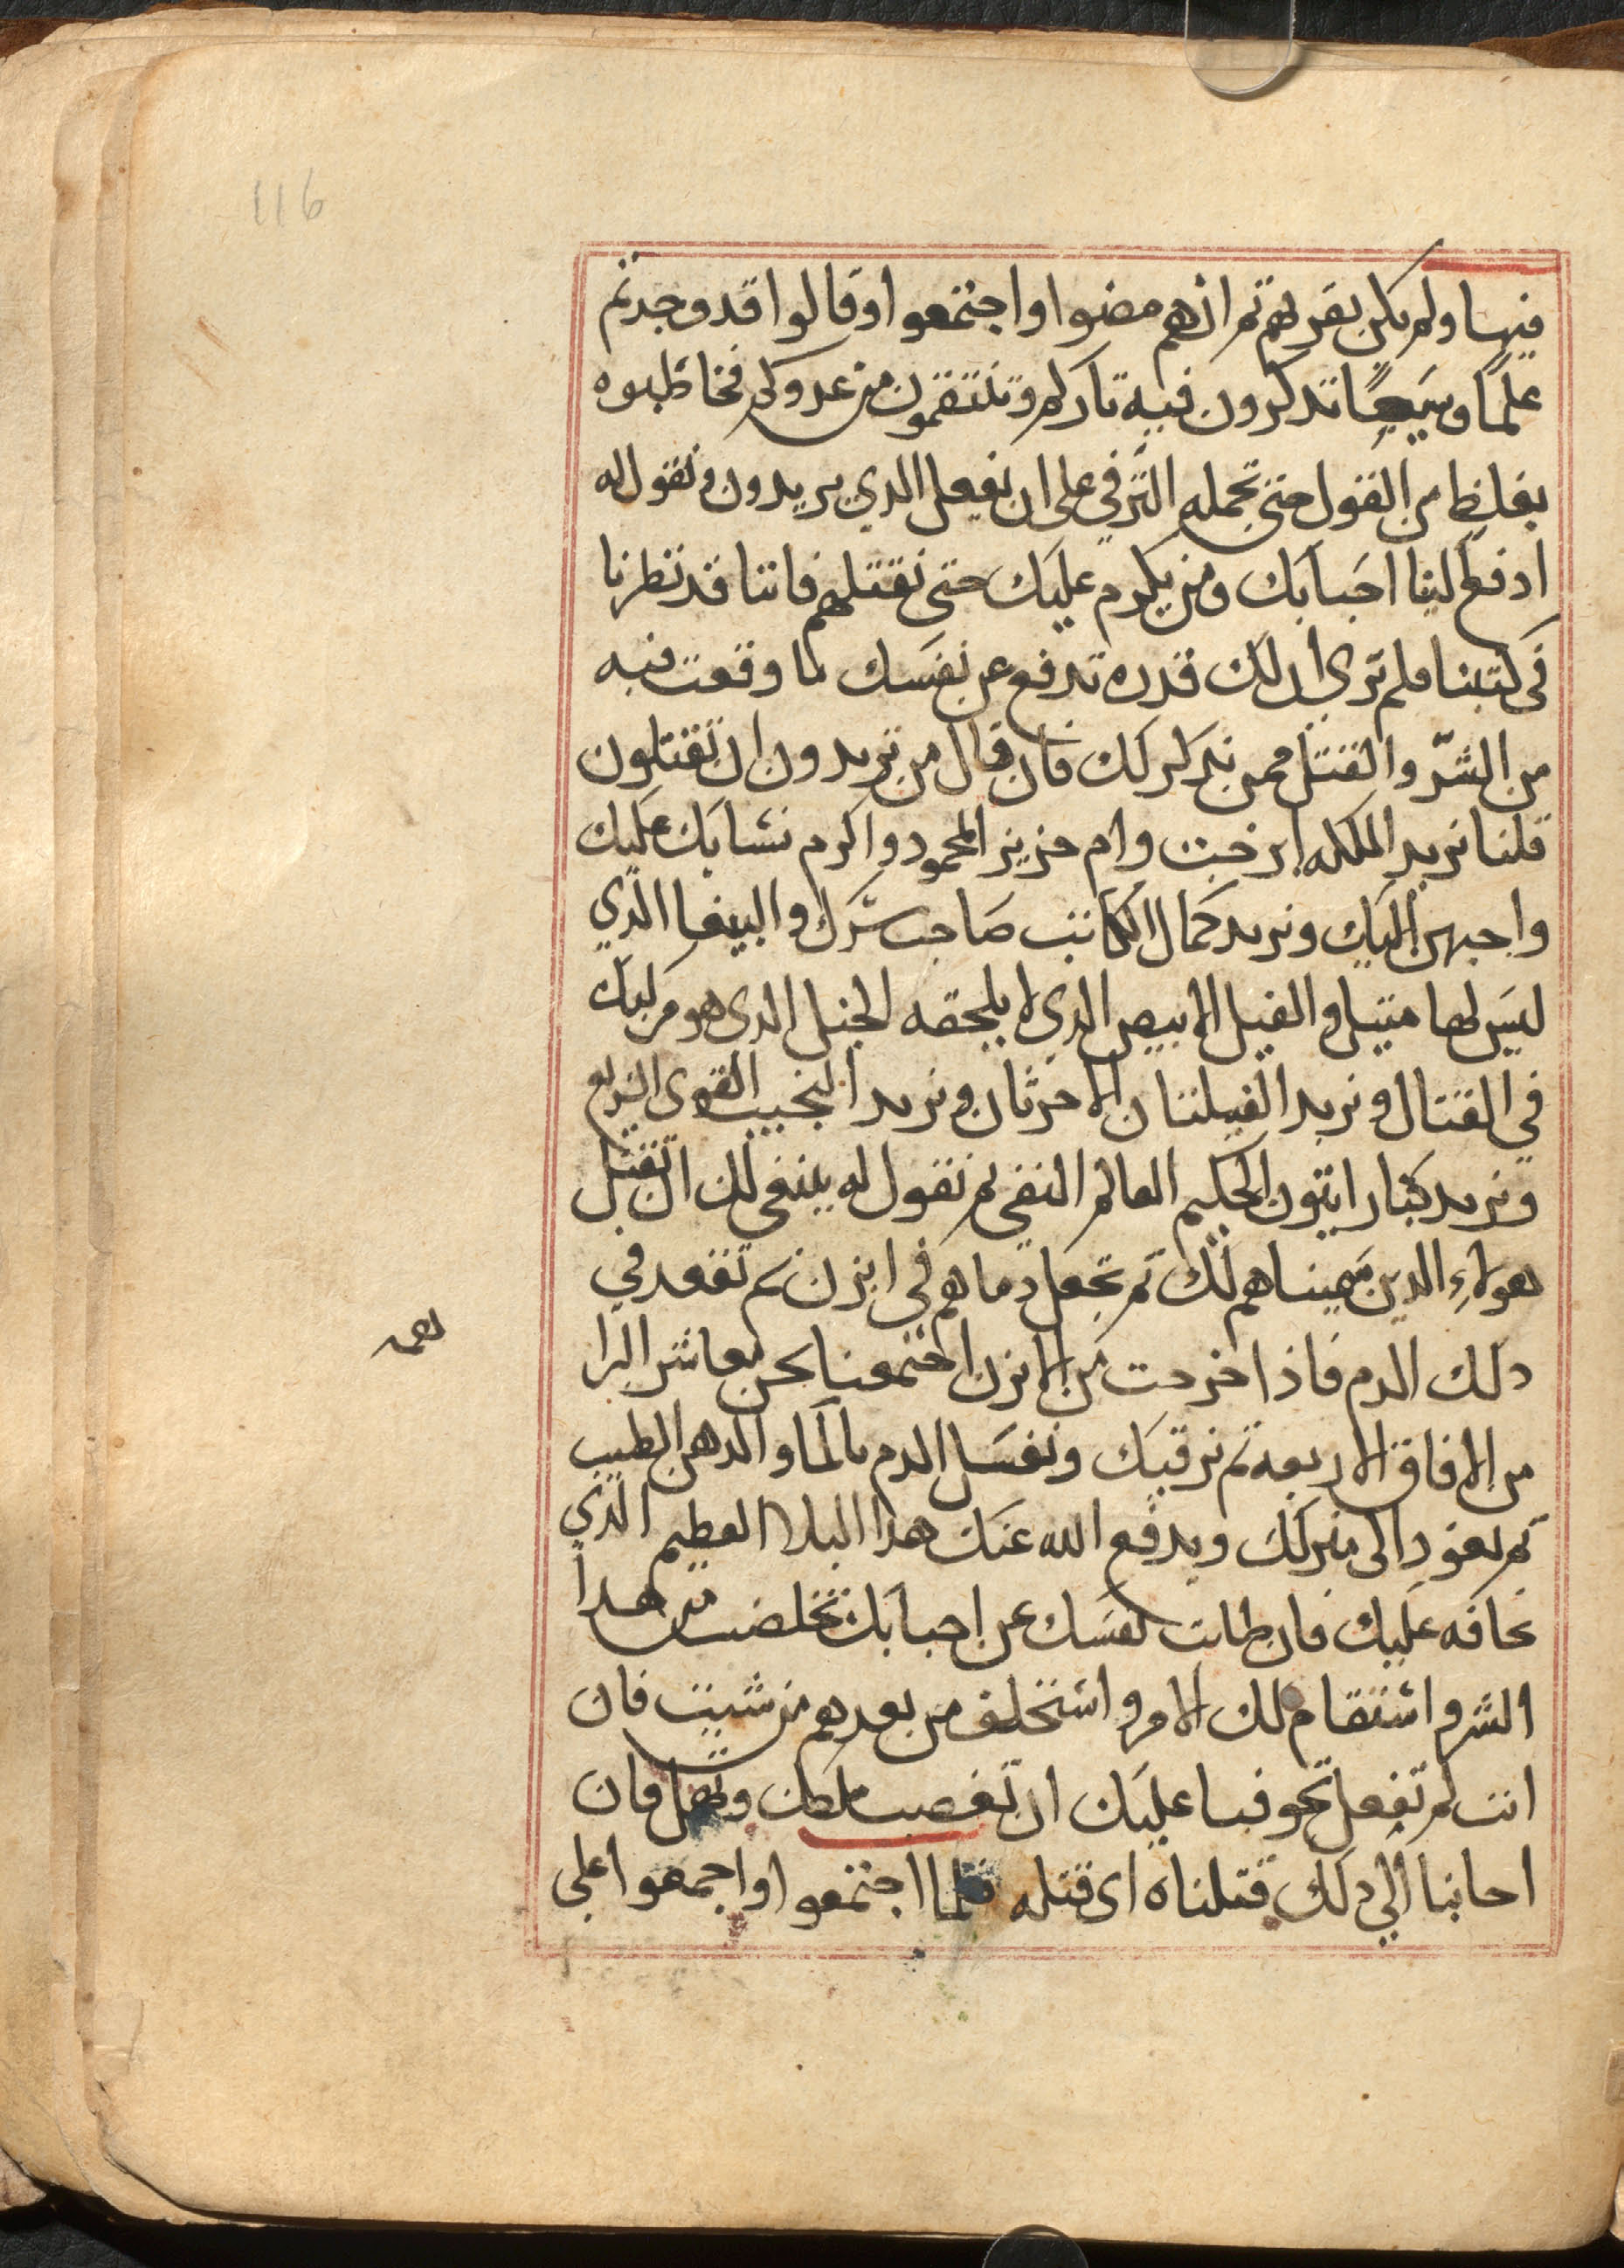 116
فيها ولم يكن بقربهم ثم انهم مضوا واجتمعوا وقالوا قد وجدتم
علماً وسيعاً تدركرون فيه تاركم وتنتقمون من عدوكم فخاطبوه
بغليظ من القول حتى تحمله الترفي على ان يفعل الدي يريدون ونقول له
ادفع لينا احبابك ومن يكرم عليك حتى نقتلهم فاننا قد نظرنا
في كتبنا فلم نرى ان لك قدره تدفع عن نفسك لما وقعت فيه
من الشرّ والقتل ممن ندكر لك فان قال من تريدون ان تقتلون
قلنا نريد الملكه ايرخت وام حزير المحمود واكرم نشابك عليك
واحبهن اليك ونريد كمال الكاتب صاحب سرك والبيغا الذي
ليس لها متيل والفيل الابيض الدي لا يلحقه الخيل الدي هو مركبك
في القتال ونريد الفيلتان الاخرتان ونريد النجيب القوى السريع
ونريد كتبار ايتون الحكيم العالم النفي ثم نقول له ينبغي لك ان تقتل
هولاء الدين سميناهم لك ثم تجعل دماهم في ابزن ثم تقعد في
دلك الدم فاذا خرجت من الابزن اجتمعنا نحن معاشر البرا
من الافاق الاربعه ثم نرقيك ونغسل الدم بالما والدهن الطيب
ثم تعود الى منزلك ويدفع الله عنك هدا البلا العظيم الذي
نخافه عليك فان طابت نفسك عن احبابك تخلصت من هدا
الشر واستقام لك الامر واستخلف من بعدهم من شيت فان
انت لم تفعل تخوفنا عليك ان تغصب ملكك وتهمل فان
اجابنا الي دلك قتلناه اي قتله فلما اجتمعوا واجمعوا على